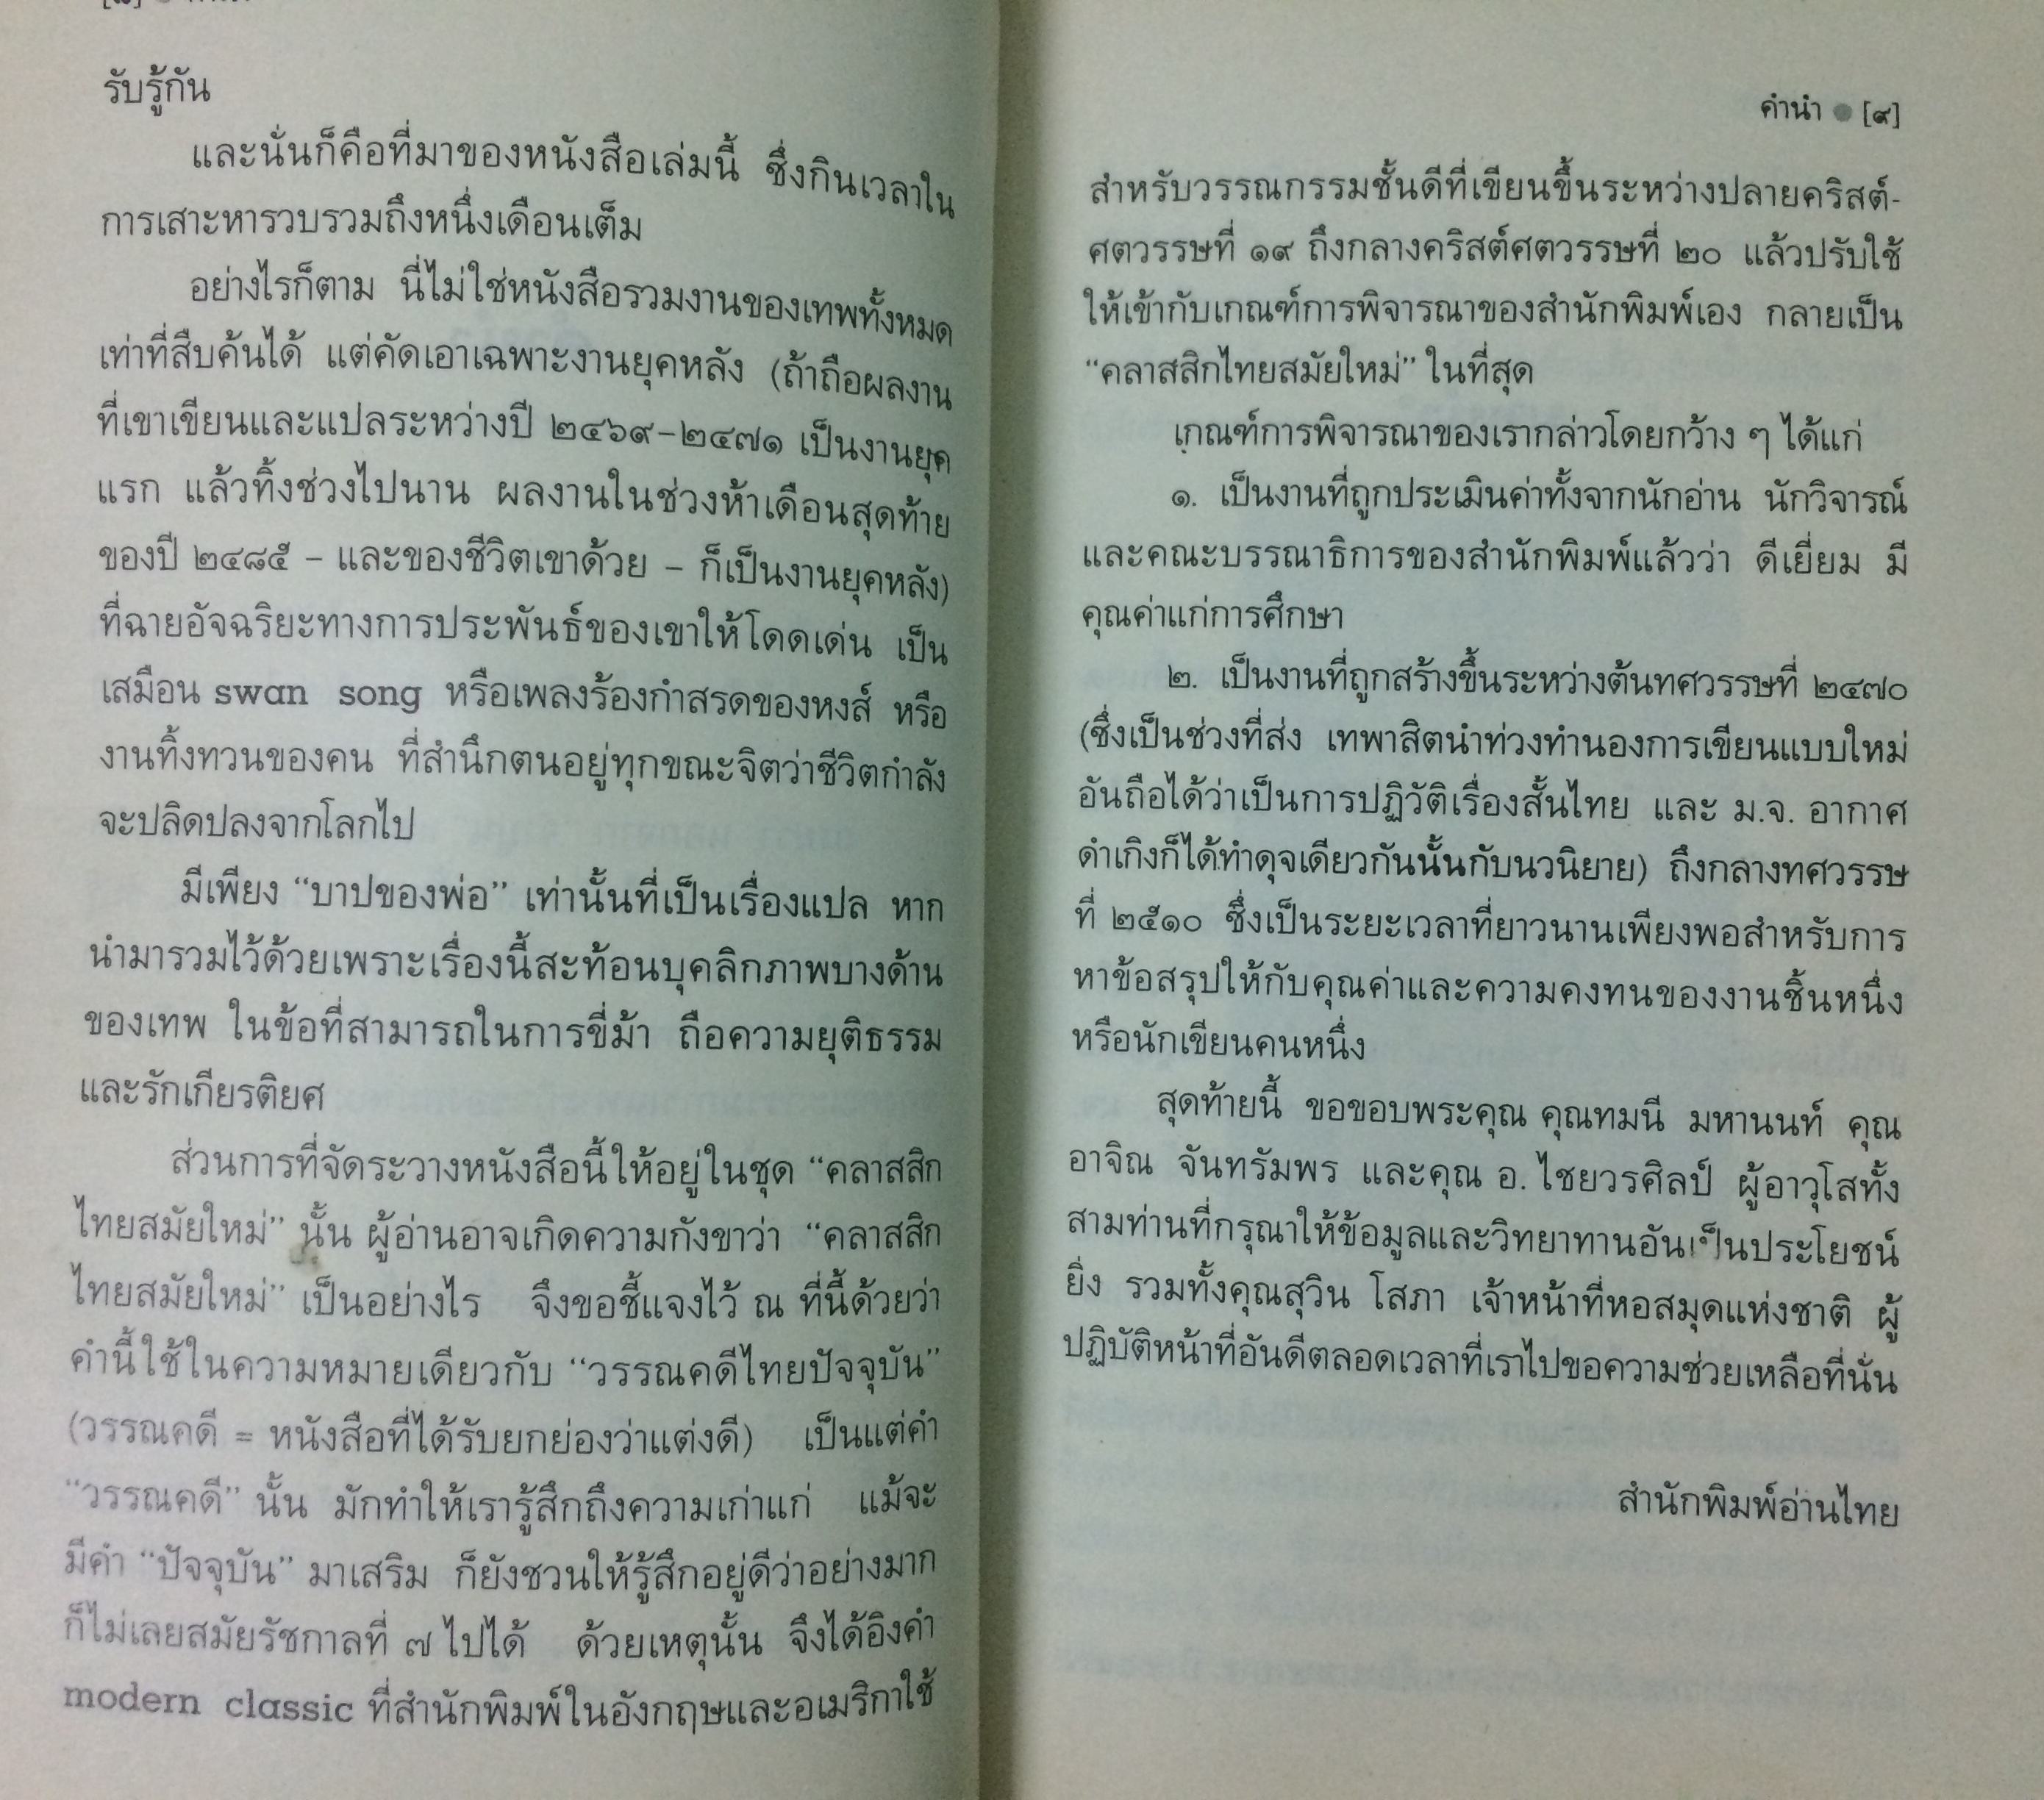 รับรู้กัน
และนั่นก็คือที่มาของหนังสือเล่มนี้ ซึ่งกินเวลาใน
การเสาะหารวบรวมถึงหนึ่งเดือนเต็ม
อย่างไรก็ตาม นี่ไม่ใช่หนังสือรวมงานของเทพทั้งหมด
เท่าที่สืบค้นได้ แต่คัดเอาเฉพาะงานยุคหลัง (ถ้าถือผลงาน
ที่เขาเขียนและแปลระหว่างปี ๒๔๖๙–๒๔๗๑ เป็นงานยุค
แรก แล้วทิ้งช่วงไปนาน ผลงานในช่วงห้าเดือนสุดท้าย
ของปี ๒๔๘๕ – และของชีวิตเขาด้วย – ก็เป็นงานยุคหลัง)
ที่ฉายอัจฉริยะทางการประพันธ์ของเขาให้โดดเด่น เป็น
เสมือน swan song หรือเพลงร้องกำสรดของหงส์ หรือ
งานทิ้งทวนของคน ที่สำนึกตนอยู่ทุกขณะจิตว่าชีวิตกำลัง
จะปลิดปลงจากโลกไป
มีเพียง “บาปของพ่อ” เท่านั้นที่เป็นเรื่องแปล หาก
นำมารวมไว้ด้วยเพราะเรื่องนี้สะท้อนบุคลิกภาพบางด้าน
ของเทพ ในข้อที่สามารถในการขี่ม้า ถือความยุติธรรม
และรักเกียรติยศ
ส่วนการที่จัดระวางหนังสือนี้ให้อยู่ในชุด “คลาสสิก
ไทยสมัยใหม่” นั้น ผู้อ่านอาจเกิดความกังขาว่า “คลาสสิก
ไทยสมัยใหม่” เป็นอย่างไร จึงขอชี้แจงไว้ ณ ที่นี้ด้วยว่า
คำนี้ใช้ในความหมายเดียวกับ “วรรณคดีไทยปัจจุบัน”
(วรรณคดี = หนังสือที่ได้รับยกย่องว่าแต่งดี) เป็นแต่คำ
“วรรณคดี” นั้น มักทำให้เรารู้สึกถึงความเก่าแก่ แม้จะ
มีคำ “ปัจจุบัน” มาเสริม ก็ยังชวนให้รู้สึกอยู่ดีว่าอย่างมาก
ก็ไม่เลยสมัยรัชกาลที่ ๗ ไปได้ ด้วยเหตุนั้น จึงได้อิงคำ
modern classic ที่สำนักพิมพ์ในอังกฤษและอเมริกาใช้
คำนำ ● [๙]
สำหรับวรรณกรรมชั้นดีที่เขียนขึ้นระหว่างปลายคริสต์-
ศตวรรษที่ ๑๙ ถึงกลางคริสต์ศตวรรษที่ ๒๐ แล้วปรับใช้
ให้เข้ากับเกณฑ์การพิจารณาของสำนักพิมพ์เอง กลายเป็น
“คลาสสิกไทยสมัยใหม่” ในที่สุด
เกณฑ์การพิจารณาของเรากล่าวโดยกว้าง ๆ ได้แก่
๑. เป็นงานที่ถูกประเมินค่าทั้งจากนักอ่าน นักวิจารณ์
และคณะบรรณาธิการของสำนักพิมพ์แล้วว่า ดีเยี่ยม มี
คุณค่าแก่การศึกษา
๒. เป็นงานที่ถูกสร้างขึ้นระหว่างต้นทศวรรษที่ ๒๔๗๐
(ซึ่งเป็นช่วงที่ส่ง เทพาสิตนำท่วงทำนองการเขียนแบบใหม่
อันถือได้ว่าเป็นการปฏิวัติเรื่องสั้นไทย และ ม.จ. อากาศ
ดำเกิงก็ได้ทำดุจเดียวกันนั้นกับนวนิยาย) ถึงกลางทศวรรษ
ที่ ๒๕๑๐ ซึ่งเป็นระยะเวลาที่ยาวนานเพียงพอสำหรับการ
หาข้อสรุปให้กับคุณค่าและความคงทนของงานชิ้นหนึ่ง
หรือนักเขียนคนหนึ่ง
สุดท้ายนี้ ขอขอบพระคุณ คุณทมนี มหานนท์ คุณ
อาจิณ จันทรัมพร และคุณ อ. ไชยวรศิลป์ ผู้อาวุโสทั้ง
สามท่านที่กรุณาให้ข้อมูลและวิทยาทานอันเป็นประโยชน์
ยิ่ง รวมทั้งคุณสุวิน โสภา เจ้าหน้าที่หอสมุดแห่งชาติ ผู้
ปฏิบัติหน้าที่อันดีตลอดเวลาที่เราไปขอความช่วยเหลือที่นั่น
สำนักพิมพ์อ่านไทย